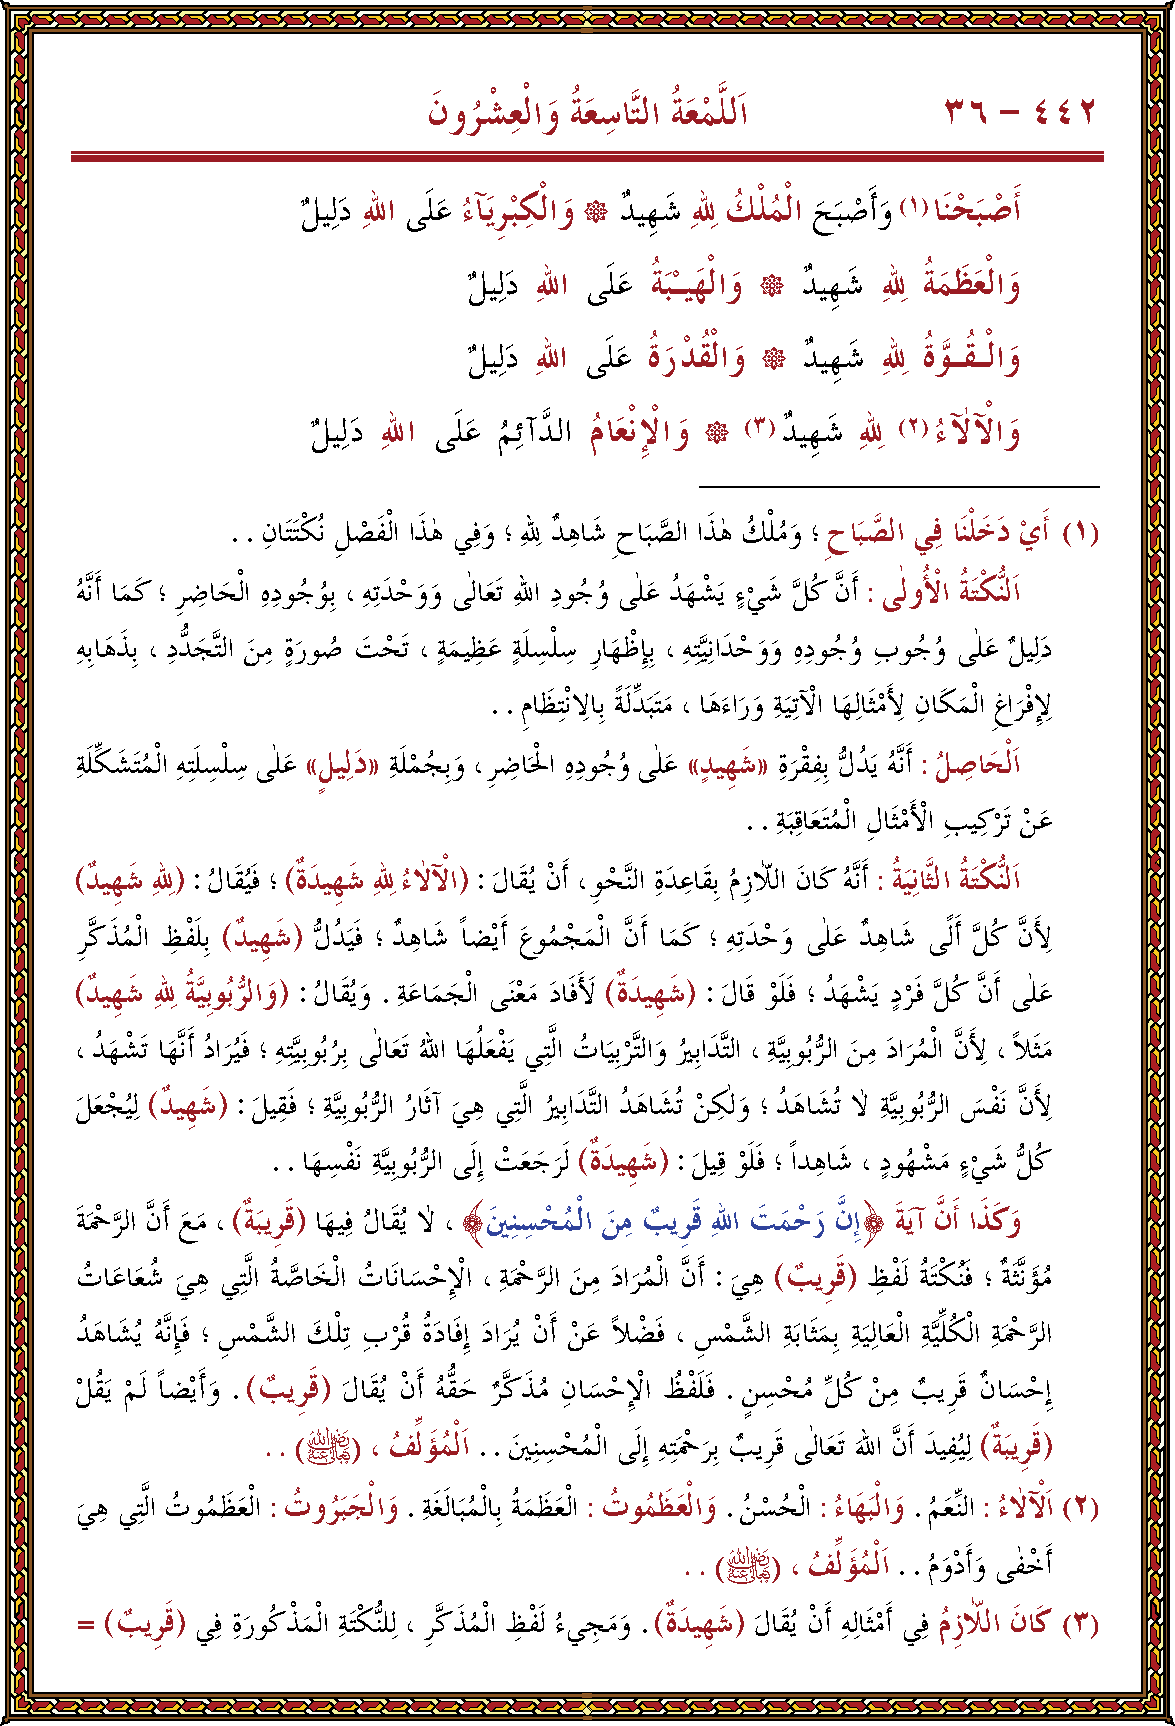 ٤٤٢ – ٣٦ اَللَّمْعَةُ التَّاسِعَةُ وَالْعِشْرُونَ
أَصْبَحْنَا (١) وَأَصْبَحَ الْمُلْكُ لِلهِ شَهِيدٌ ۞ وَالْكِبْرِيَآءُ عَلَى اللهِ دَلِيلٌ
وَالْعَظَمَةُ لِلهِ شَهِيدٌ ۞ وَالْهَيْبَةُ عَلَى اللهِ دَلِيلٌ
وَالْقُوَّةُ لِلهِ شَهِيدٌ ۞ وَالْقُدْرَةُ عَلَى اللهِ دَلِيلٌ
وَالْآلَآءُ (٢) لِلهِ شَهِيدٌ (٣) ۞ وَالْإِنْعَامُ الدَّآئِمُ عَلَى اللهِ دَلِيلٌ
(١) أَيْ دَخَلْنَا فِي الصَّبَاحِ ؛ وَمُلْكُ هٰذَا الصَّبَاحِ شَاهِدٌ لِلهِ ؛ وَفِي هٰذَا الْفَصْلِ نُكْتَتَانِ . .
اَلنُّكْتَةُ الْأُولٰى : أَنَّ كُلَّ شَيْءٍ يَشْهَدُ عَلٰى وُجُودِ اللهِ تَعَالٰى وَوَحْدَتِهِ ، بِوُجُودِهِ الْحَاضِرِ ؛ كَمَا أَنَّهُ
دَلِيلٌ عَلٰى وُجُوبِ وُجُودِهِ وَوَحْدَانِيَّتِهِ ، بِإِظْهَارِ سِلْسِلَةٍ عَظِيمَةٍ ، تَحْتَ صُورَةٍ مِنَ التَّجَدُّدِ ، بِذَهَابِهِ
لِإِفْرَاغِ الْمَكَانِ لِأَمْثَالِهَا الْآتِيَةِ وَرَاءَهَا ، مَتَبَدِّلَةً بِالِانْتِظَامِ . .
اَلْحَاصِلُ : أَنَّهُ يَدُلُّ بِفِقْرَةِ «شَهِيدٍ» عَلٰى وُجُودِهِ الْحَاضِرِ ، وَبِجُمْلَةِ «دَلِيلٍ» عَلٰى سِلْسِلَتِهِ الْمُتَشَكِّلَةِ
عَنْ تَرْكِيبِ الْأَمْثَالِ الْمُتَعَاقِبَةِ . .
اَلنُّكْتَةُ الثَّانِيَةُ : أَنَّهُ كَانَ اللَّازِمُ بِقَاعِدَةِ النَّحْوِ ، أَنْ يُقَالَ : (الْآلَاءُ لِلهِ شَهِيدَةٌ) ؛ فَيُقَالُ : (لِلهِ شَهِيدٌ)
لِأَنَّ كُلَّ أَلًى شَاهِدٌ عَلٰى وَحْدَتِهِ ؛ كَمَا أَنَّ الْمَجْمُوعَ أَيْضاً شَاهِدٌ ؛ فَيَدُلُّ (شَهِيدٌ) بِلَفْظِ الْمُذَكَّرِ
عَلٰى أَنَّ كُلَّ فَرْدٍ يَشْهَدُ ؛ فَلَوْ قَالَ : (شَهِيدَةٌ) لَأَفَادَ مَعْنَى الْجَمَاعَةِ . وَيُقَالُ : (وَالرُّبُوبِيَّةُ لِلهِ شَهِيدٌ)
مَثَلاً ، لِأَنَّ الْمُرَادَ مِنَ الرُّبُوبِيَّةِ ، التَّدَابِيرُ وَالتَّرْبِيَاتُ الَّتِي يَفْعَلُهَا اللهُ تَعَالٰى بِرُبُوبِيَّتِهِ ؛ فَيُرَادُ أَنَّهَا تَشْهَدُ ،
لِأَنَّ نَفْسَ الرُّبُوبِيَّةِ لَا تُشَاهَدُ ؛ وَلٰكِنْ تُشَاهَدُ التَّدَابِيرُ الَّتِي هِيَ آثَارُ الرُّبُوبِيَّةِ ؛ فَقِيلَ : (شَهِيدٌ) لِيُجْعَلَ
كُلُّ شَيْءٍ مَشْهُودٍ ، شَاهِداً ؛ فَلَوْ قِيلَ : (شَهِيدَةٌ) لَرَجَعَتْ إِلَى الرُّبُوبِيَّةِ نَفْسِهَا . .
وَكَذَا أَنَّ آيَةَ ﴿إِنَّ رَحْمَتَ اللهِ قَرِيبٌ مِنَ الْمُحْسِنِينَ﴾ ، لَا يُقَالُ فِيهَا (قَرِيبَةٌ) ، مَعَ أَنَّ الرَّحْمَةَ
مُؤَنَّثَةٌ ؛ فَنُكْتَةُ لَفْظِ (قَرِيبٌ) هِيَ : أَنَّ الْمُرَادَ مِنَ الرَّحْمَةِ ، الْإِحْسَانَاتُ الْخَاصَّةُ الَّتِي هِيَ شُعَاعَاتُ
الرَّحْمَةِ الْكُلِّيَّةِ الْعَالِيَةِ بِمَثَابَةِ الشَّمْسِ ، فَضْلاً عَنْ أَنْ يُرَادَ إِفَادَةُ قُرْبِ تِلْكَ الشَّمْسِ ؛ فَإِنَّهُ يُشَاهَدُ
إِحْسَانٌ قَرِيبٌ مِنْ كُلِّ مُحْسِنٍ . فَلَفْظُ الْإِحْسَانِ مُذَكَّرٌ حَقُّهُ أَنْ يُقَالَ (قَرِيبٌ) . وَأَيْضاً لَمْ يَقُلْ
(قَرِيبَةٌ) لِيُفِيدَ أَنَّ اللهَ تَعَالٰى قَرِيبٌ بِرَحْمَتِهِ إِلَى الْمُحْسِنِينَ . . اَلْمُؤَلِّفُ ، (رضي الله عنه) . .
(٢) اَلْآلَاءُ : النِّعَمُ . وَالْبَهَاءُ : الْحُسْنُ . وَالْعَظَمُوتُ : الْعَظَمَةُ بِالْمُبَالَغَةِ . وَالْجَبَرُوتُ : الْعَظَمُوتُ الَّتِي هِيَ
أَخْفٰى وَأَدْوَمُ . . اَلْمُؤَلِّفُ ، (رضي الله عنه) . .
(٣) كَانَ اللَّازِمُ فِي أَمْثَالِهِ أَنْ يُقَالَ (شَهِيدَةٌ) . وَمَجِيءُ لَفْظِ الْمُذَكَّرِ ، لِلنُّكْتَةِ الْمَذْكُورَةِ فِي (قَرِيبٌ) =